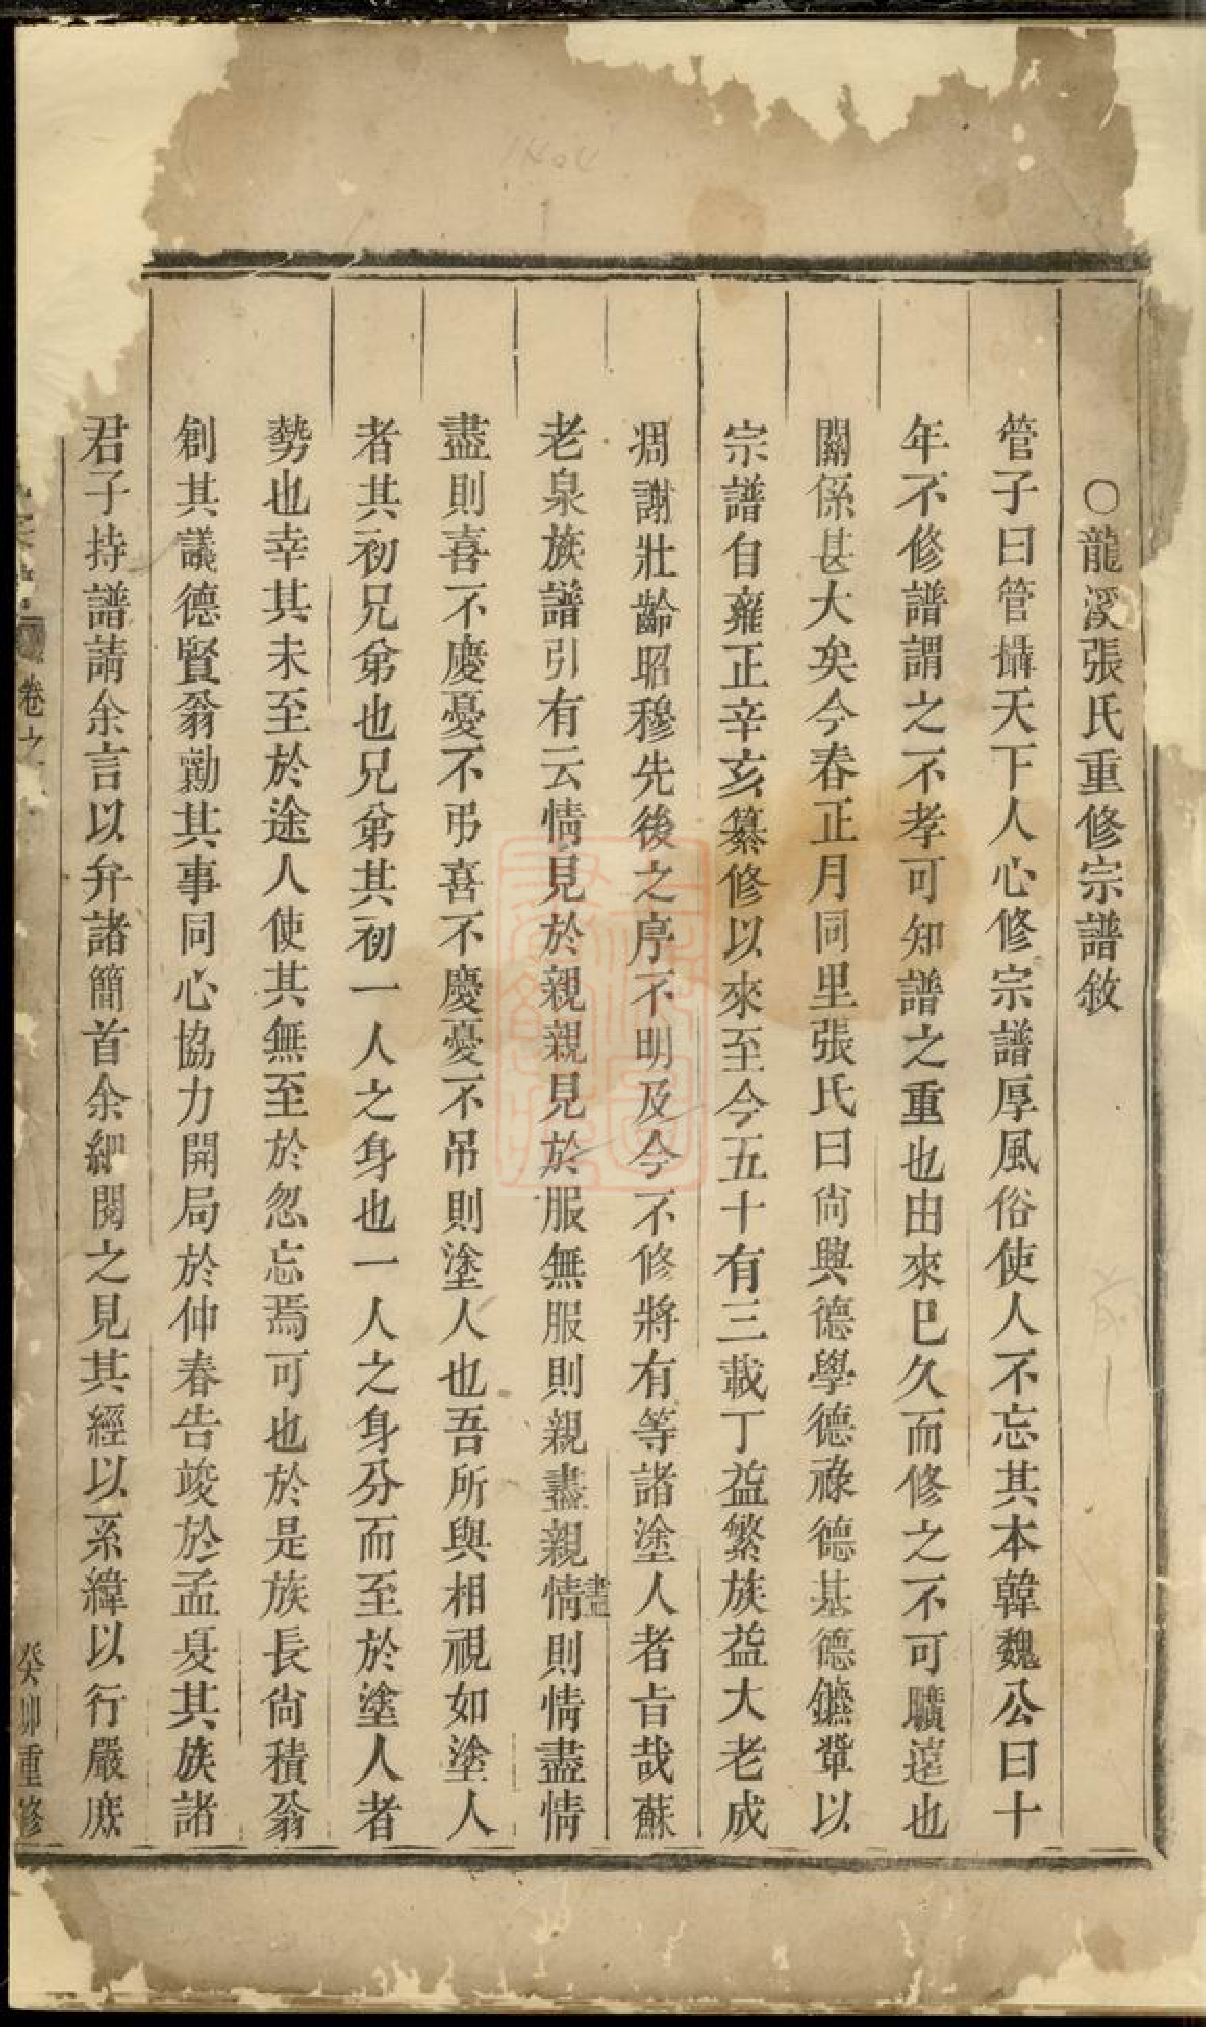 ○龍溪張氏重修宗譜敘
管子曰管攝天下人心修宗譜厚風俗使人不忘其本韓魏公曰十
年不修譜謂之不孝可知譜之重也由來已久而修之不可曠遠也
關係甚大矣今春正月同里張氏曰尙興德學德祿德基德鑣軰以
宗譜自雍正辛亥纂修以來至今五十有三載丁益繁族益大老成
凋謝壯齡昭穆先後之序不明及今不修將有等諸塗人者㫖哉蘇
老泉族譜引有云情見於親親見於服無服則親盡親盡情則情盡情
盡則喜不慶憂不弔喜不慶憂不吊則塗人也吾所與相視如塗人
者其初兄弟也兄弟其初一人之身也一人之身分而至於塗人者
勢也幸其未至於途人使其無至於忽忘焉可也於是族長尙積翁
創其議德賢翁勷其事同心協力開局於仲春告竣於孟夏其族諸
君子持譜請余言以弁諸簡首余細閱之見其經以系緯以行嚴庶
卷之
癸卯重修